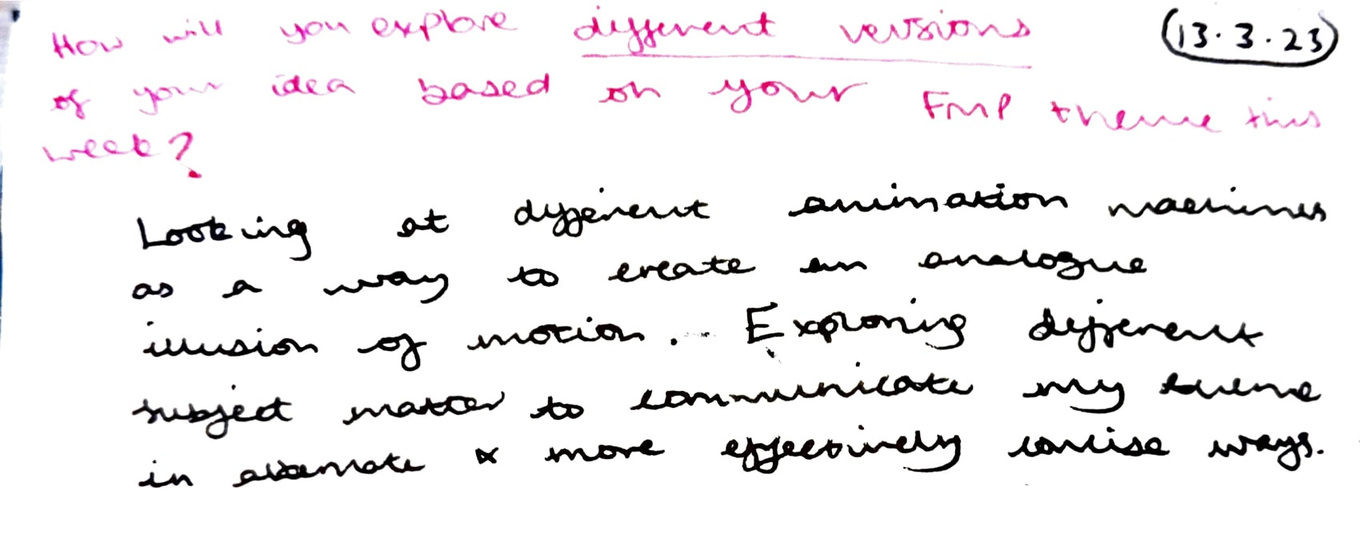 How will you explore different versions (13.3.23)
of your idea based on your FMP theme this
week?
Looking at different animation machines
as a way to create an analogue
illusion of motion. Exploring different
subject matter to communicate my theme
in alternate & more effectively concise ways.